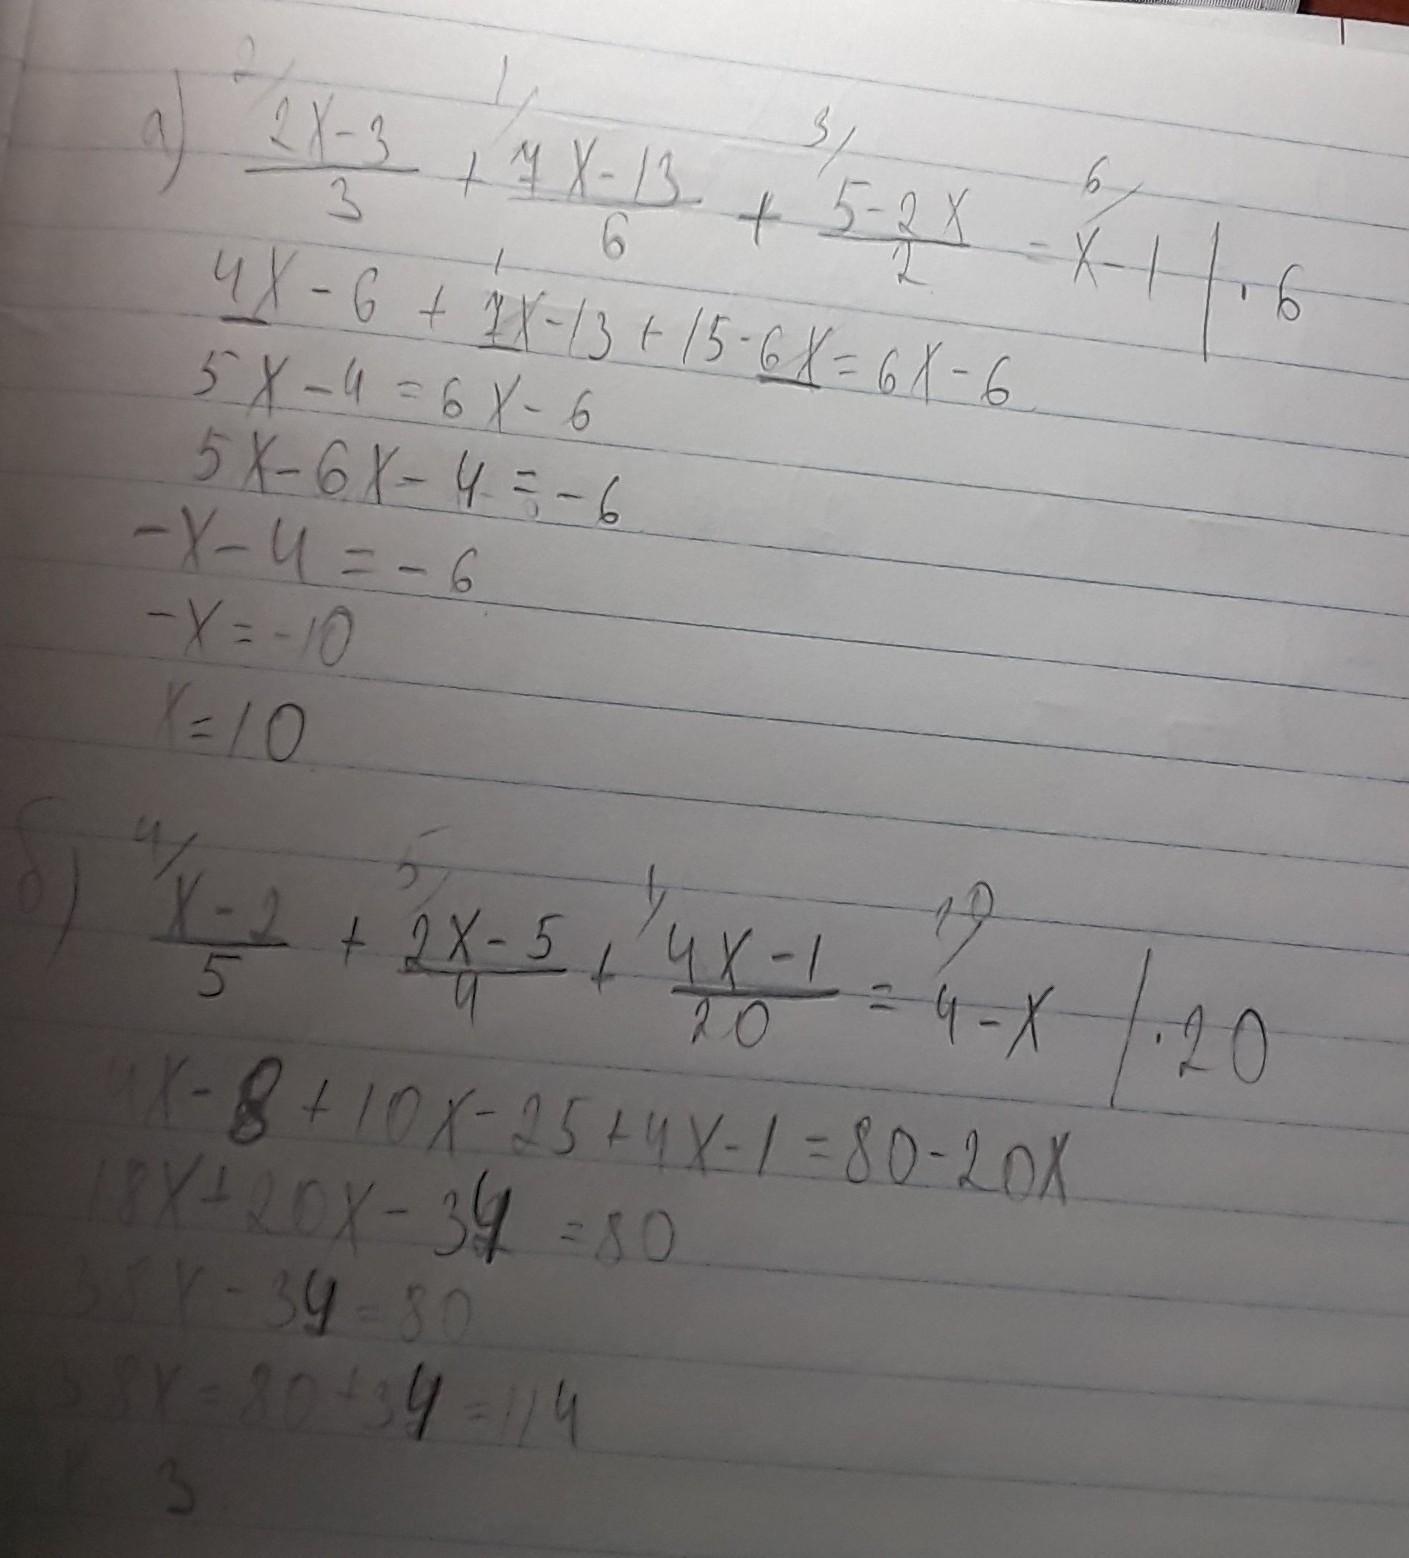 а) 2/ (2x-3)/3 + 1/ (7x-13)/6 + 3/ (5-2x)/2 = 6/ x-1 | · 6
4x - 6 + 7x - 13 + 15 - 6x = 6x - 6
5x - 4 = 6x - 6
5x - 6x - 4 = -6
-x - 4 = -6
-x = -10
x = 10
б) 4/ (x-2)/5 + 5/ (2x-5)/4 + 1/ (4x-1)/20 = 4-x | · 20
4x - 8 + 10x - 25 + 4x - 1 = 80 - 20x
18x + 20x - 34 = 80
38x - 34 = 80
38x = 80 + 34 = 114
3